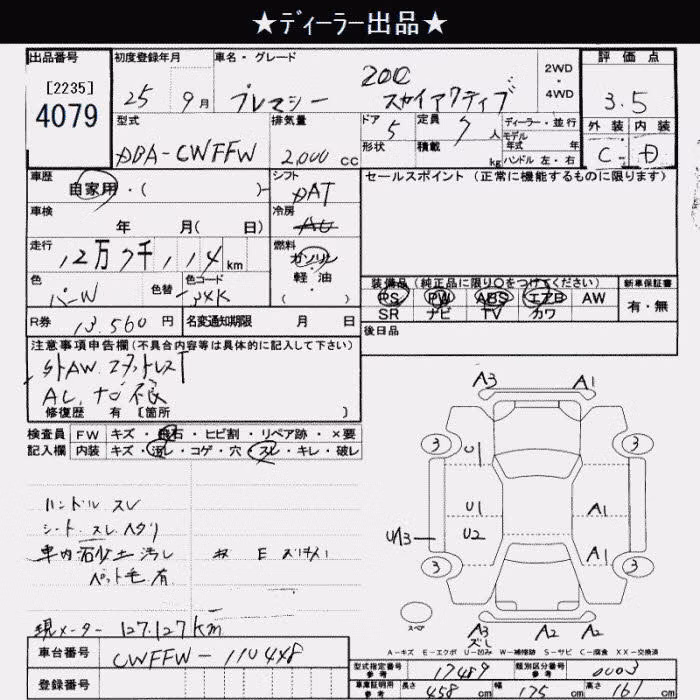 ★ディーラー出品★
出品番号
[2235]
4079
初度登録年月
25年 9月
車名・グレード
プレマシー 20C スカイアクティブ
2WD
・
4WD
評価点
3.5
外装 内装
C - D
型式
DBA-CWFFW
排気量
2,000 cc
ドア
5
形状
定員
7 人
積載
kg
ディーラー・並行
モデル
年式 年
ハンドル 左・右
車歴
自家用・( )
シフト
DAT
車検
年 月( 日)
冷房
AC
走行
12万7千114km
燃料
ガソリン
軽・油
・( )
色
パーW
色替
色コード
34K
セールスポイント (正常に機能するものに限ります)
装備品 (純正品に限り○をつけてください)
PS PW ABS エアB AW
SR ナビ TV カワ
新車保証書
有・無
R券
13,560円
名変通知期限 月 日
後日品
注意事項申告欄(不具合内容等は具体的に記入して下さい)
外AW.スタットレスT
AC,ナビ不良
修復歴 有 [箇所 ]
検査員
記入欄
FW キズ・飛石・ヒビ割・リペア跡・×要
内装 キズ・汚レ・コゲ・穴・スレ・キレ・破レ
ハンドル スレ
シート スレ ヘタリ
車内 石砂土 汚レ
ペット毛有
現メーター 127,127km
車台番号
CWFFW-110448
登録番号
A3 A1
3 3
U1
U1 A1
U/13 U2
A1
3 3
スペア
A3 A2 A2
ズレ
A-キズ E-エクボ U-凹み W-補修跡 S-サビ C-腐食 XX-交換済
型式指定番号
参考
17489
類別区分番号
参考
0003
車庫証明用
参考
長さ 458 cm 幅 175 cm 高さ 161 cm